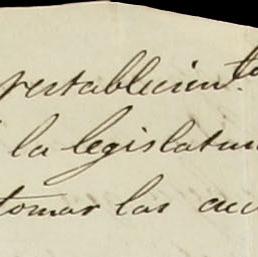 restablecim.to
la legislatu
tomar las